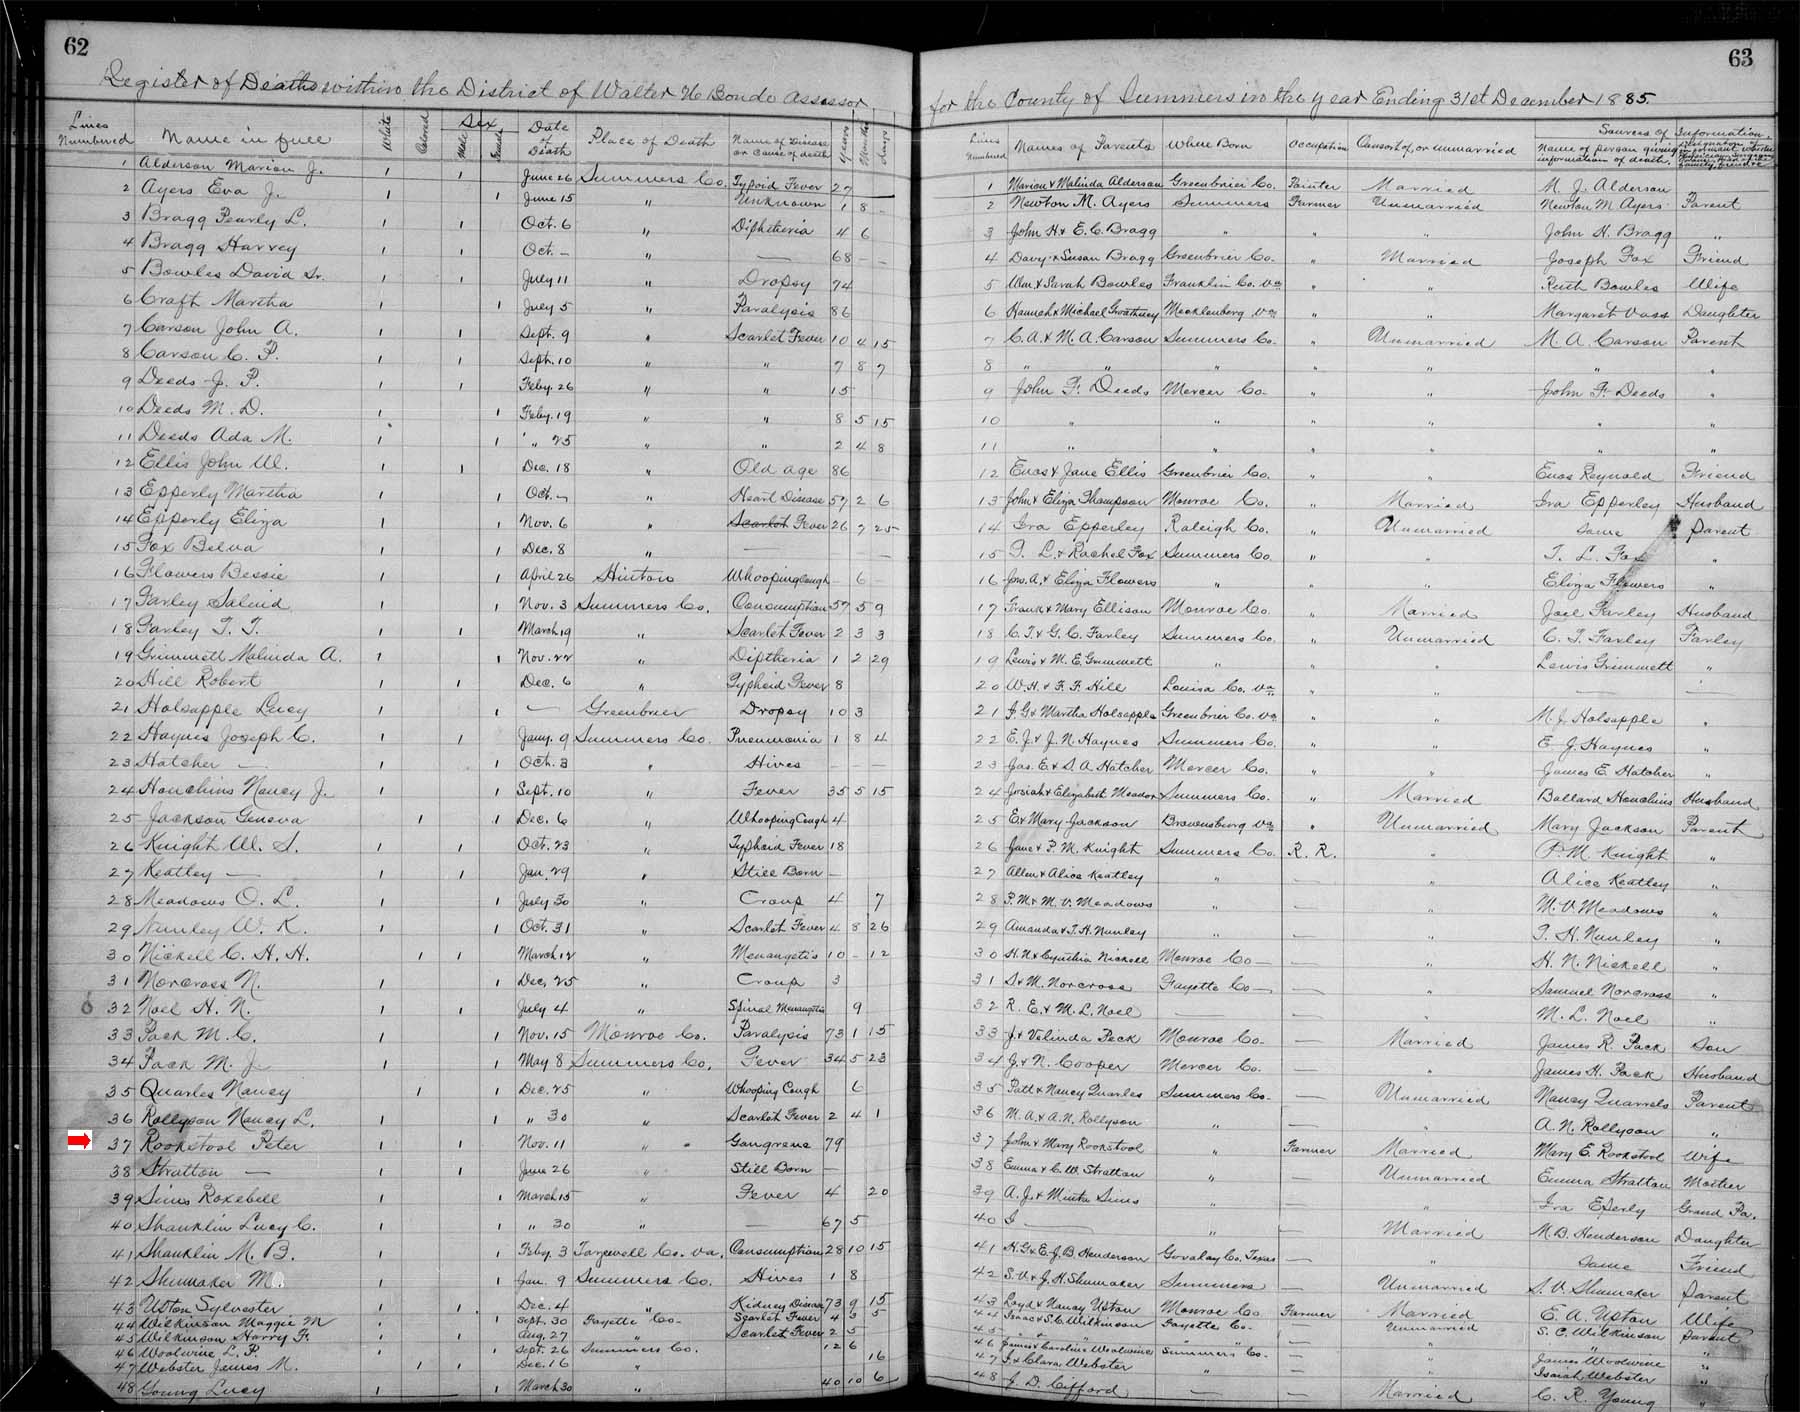 62
Register of Deaths within the District of Walter H Bonde Assessor
Lines Numbered Name in full White Colored Sex Male Female Date of Death Place of Death Name of Disease or Cause of death Years Months Days
1 Alderson Marion J. 1 1 June 26 Summers Co. Typoid Fever 27
2 Ayers Eva J. 1 1 June 15 " Unknown 1 8 -
3 Bragg Pearly L. 1 1 Oct. 6 " Diphtheria 4 6
4 Bragg Harvey 1 1 Oct. - " — 68 - -
5 Bowles David Sr. 1 1 July 11 " Dropsy 74
6 Craft Martha 1 1 July 5 " Paralysis 86
7 Carson John A. 1 1 Sept. 9 " Scarlet Fever 10 4 15
8 Carson C. P. 1 1 Sept. 10 " " 7 8 7
9 Deeds J. P. 1 1 Feby. 26 " " 15
10 Deeds M. D. 1 1 Feby. 19 " " 8 5 15
11 Deeds Ada M. 1 1 " 25 " " 2 4 8
12 Ellis John W. 1 1 Dec. 18 " Old age 86
13 Epperly Martha 1 1 Oct. - " Heart Disease 57 2 6
14 Epperly Eliza 1 1 Nov. 6 " Scarlet Fever 26 7 25
15 Fox Belva 1 1 Dec. 8 " — —
16 Flowers Bessie 1 1 April 26 Hinton Whooping Cough - 6
17 Farley Salind 1 1 Nov. 3 Summers Co. Consumption 57 5 9
18 Farley T. T. 1 1 March 19 " Scarlet Fever 2 3 3
19 Grimmett Malinda A. 1 1 Nov. 22 " Diptheria 1 2 29
20 Hill Robert 1 1 Dec. 6 " Typhoid Fever 8
21 Holsapple Lucy 1 1 — Greenbrier Dropsy 10 3
22 Haynes Joseph C. 1 1 Jany. 9 Summers Co. Pneumonia 1 8 4
23 Hatcher — 1 1 Oct. 3 " Hives — — —
24 Houchins Nancy J. 1 1 Sept. 10 " Fever 35 5 15
25 Jackson Geneva 1 1 Dec. 6 " Whooping Cough 4
26 Knight W. S. 1 1 Oct. 23 " Typhoid Fever 18
27 Keatley — 1 1 Jan. 29 " Still Born —
28 Meadows O. L. 1 1 July 30 " Croup 4 7
29 Nunley W. K. 1 1 Oct. 31 " Scarlet Fever 4 8 26
30 Nickell C. H. H. 1 1 March 12 " Menangetis 10 - 12
31 Norcross N. 1 1 Dec. 25 " Croup 3
32 Noel H. N. 1 1 July 4 " Spinal Menangetis 9
33 Pack M. C. 1 1 Nov. 15 Monroe Co. Paralysis 73 1 15
34 Pack M. J. 1 1 May 8 Summers Co. Fever 34 5 23
35 Quarles Nancy 1 1 Dec. 25 " Whooping Cough 6
36 Rollyson Nancy L. 1 1 " 30 " Scarlet Fever 2 4 1
37 Rookstool Peter 1 1 Nov. 11 " " Gangrene 79
38 Stratton — 1 1 June 26 " Still Born —
39 Sims Roxebell 1 1 March 15 " Fever 4 20
40 Shanklin Lucy C. 1 1 " 30 " — 67 5
41 Shanklin M. B. 1 1 Feby. 3 Tazewell Co. Va. Consumption 28 10 15
42 Shumaker M 1 1 Jan. 9 Summers Co. Hives 1 8
43 Upton Sylvester 1 1 Dec. 4 " Kidney Disease 73 9 15
44 Wilkinson Maggie M 1 1 Sept. 30 Fayette Co- Scarlet Fever 4 3 5
45 Wilkinson Harry F. 1 1 Aug. 27 " Scarlet Fever 2 5
46 Woolwine L. P. 1 1 Sept. 26 Summers Co. 12 6
47 Webster James M. 1 1 Dec. 16 " 16
48 Young Lucy 1 1 March 30 " 40 10 6
63
for the County of Summers in the year Ending 31st December 1885.
Lines Numbered Names of Parents Where Born Occupation Consort of, or unmarried Sources of Information. Name of person giving information of death.
1 Marion & Malinda Alderson Greenbrier Co. Painter Married M. J. Alderson
2 Newton M. Ayers Summers Farmer Unmarried Newton M Ayers Parent
3 John H. & E. C. Bragg " " " John H. Bragg "
4 Davy & Susan Bragg Greenbrier Co. " Married Joseph Fox Friend
5 Wm. & Sarah Bowles Franklin Co. Va " " Ruth Bowles Wife
6 Hannah & Michael Gwathney Mecklenberg Va " " Margaret Vass Daughter
7 C. A. & M. A. Carson Summers Co. " Unmarried M. A. Carson Parent
8 " " " " " " "
9 John F. Deeds Mercer Co. " " John F. Deeds "
10 " " " " " "
11 " " " " " "
12 Enos & Jane Ellis Greenbrier Co. " " Enos Reynold Friend
13 John & Eliza Thompson Monroe Co. " Married Ira Epperley Husband
14 Ira Epperley Raleigh Co. " Unmarried Same Parent
15 T. L. & Rachel Fox Summers Co. " " T. L. Fox "
16 Jos. A. & Eliza Flowers " " " Eliza Flowers "
17 Frank & Mary Ellison Monroe Co. " Married Joel Farley Husband
18 C. T. & G. C. Farley Summers Co. " Unmarried C. T. Farley Farley
19 Lewis & M. E. Grimmett " " " Lewis Grimmett "
20 W. H. & F. F. Hill Louisa Co. Va " " — —
21 J. G & Martha Holsapple Greenbrier Co. Va " " M. J. Holsapple "
22 E. J. & J. N. Haynes Summers Co. " " E J. Haynes "
23 Jas. E. & S. A Hatcher Mercer Co. " " James E. Hatcher "
24 Josiah & Elizabeth Meador Summers Co. " Married Ballard Houchins Husband
25 E & Mary Jackson Brownsburg Va " Unmarried Mary Jackson Parent
26 Jane & P. M. Knight Summers Co. R. R. " P. M. Knight "
27 Allen & Alice Keatley " — " Alice Keatley "
28 P. M & M. V. Meadows " — " M. V. Meadows "
29 Amanda & T. H. Nunley " — " T. H. Nunley "
30 H. N. & Cynthia Nickell Monroe Co — — " H. N. Nickell "
31 S & M. Norcross Fayette Co — — " Samuel Norcross "
32 R. E. & M. L. Noel — — " M. L. Noel "
33 J. & Velinda Peck Monroe Co- — Married James R. Pack Son
34 J. & N. Cooper Mercer Co. — " James H. Pack Husband
35 Patt & Nancy Quarles Summers Co. — Unmarried Nancy Quarrels Parent
36 M. A & A. N. Rollyson " — " A. N. Rollyson "
37 John & Mary Rookstool " Farmer Married Mary E. Rookstool Wife
38 Emma & C. W. Stratton " — Unmarried Emma Stratton Mother
39 A. J. & Minta Sims " — " Ira Eperly Grand Pa.
40 G — " — Married M. B. Henderson Daughter
41 H. G & E. J. B. Henderson Govalay Co. Texas — " Same Friend
42 S. V. & J. H. Shumaker Summers — Unmarried S. V. Shumaker Parent
43 Loyd & Nancy Upton Monroe Co. Farmer Married E. A. Upton Wife
44 Isaac & S. C. Wilkinson Fayette Co. — Unmarried S. C. Wilkinson Parent
45 " " " " — " " "
46 James & Caroline Woolwine Summers Co. — " James Woolwine "
47 I. & Clara Webster " — " Isaiah Webster "
48 J. D. Gifford — — Married C. R. Young "